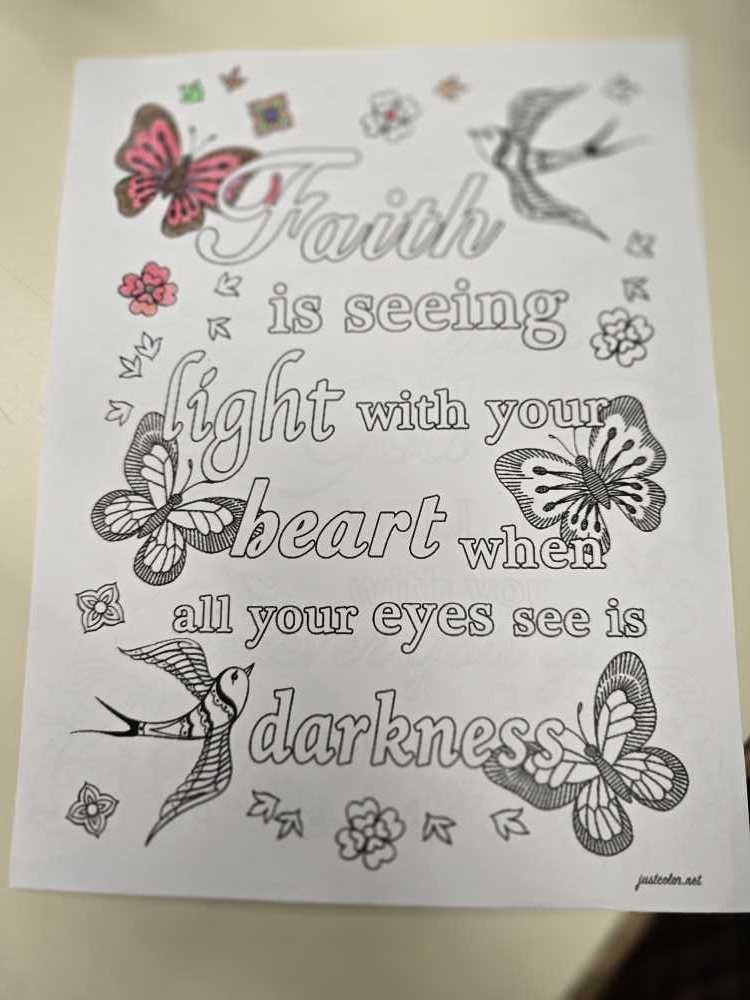 Faith
is seeing
light with your
heart when
all your eyes see is
darkness
justcolor.net